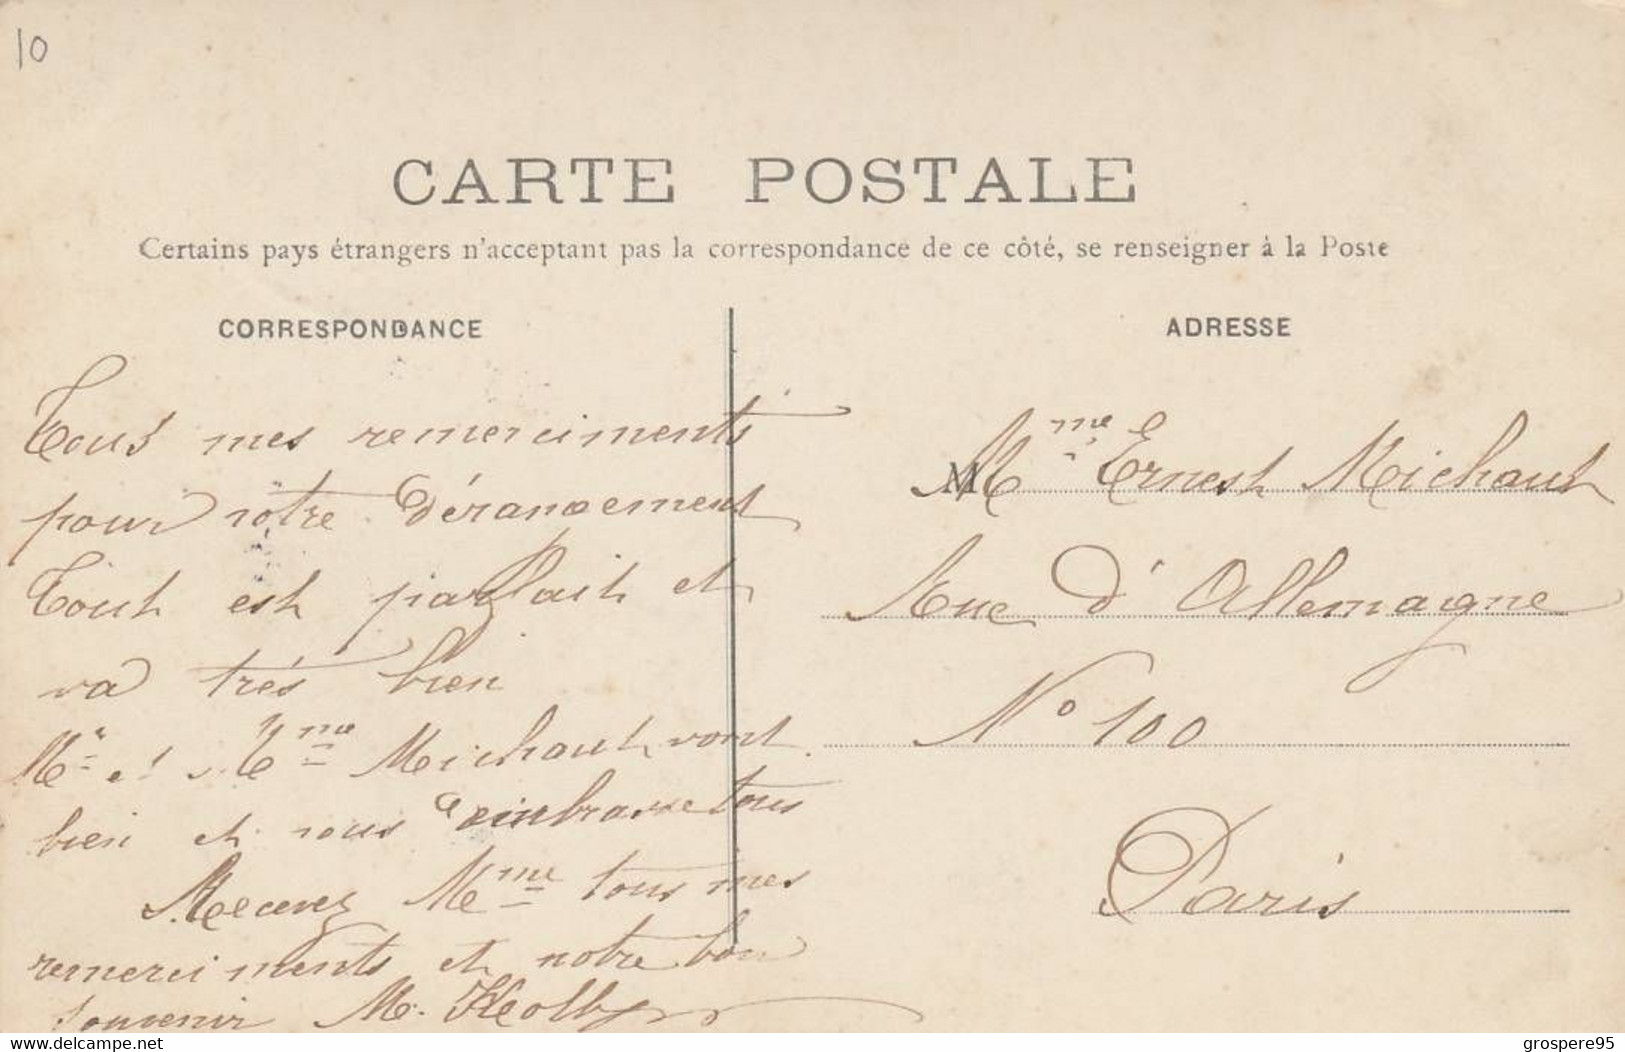 10
CARTE POSTALE
Certains pays étrangers n'acceptant pas la correspondance de ce côté, se renseigner à la Poste
CORRESPONDANCE
Tous mes remerciments
pour votre dérangement
Tout est parfait et
va très bien
Mr et Mme Michaut vont
bien et vous embrasse tous
Recevez Mme tous mes
remerciments et notre bon
souvenir M.
ADRESSE
M Mme Ernest Michaut
Rue d'Allemagne
No 100
Paris
www.delcampe.net
grospere95